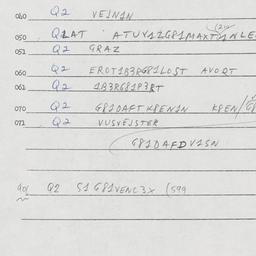 040 Q2 VEJN1N
050 Q2LAT ATUV12G81MAXT
051 Q2 GRAZ
060 Q2 EROT1B3RG81LOST AVORT
061 Q2 1B3RG81P3RT
070 Q2 G81DAFTK8EN1N K8EN/
071 Q2 VUSVEJSTER
G81DAFDV1SN
901 Q2 S1G81VENC3X (S99